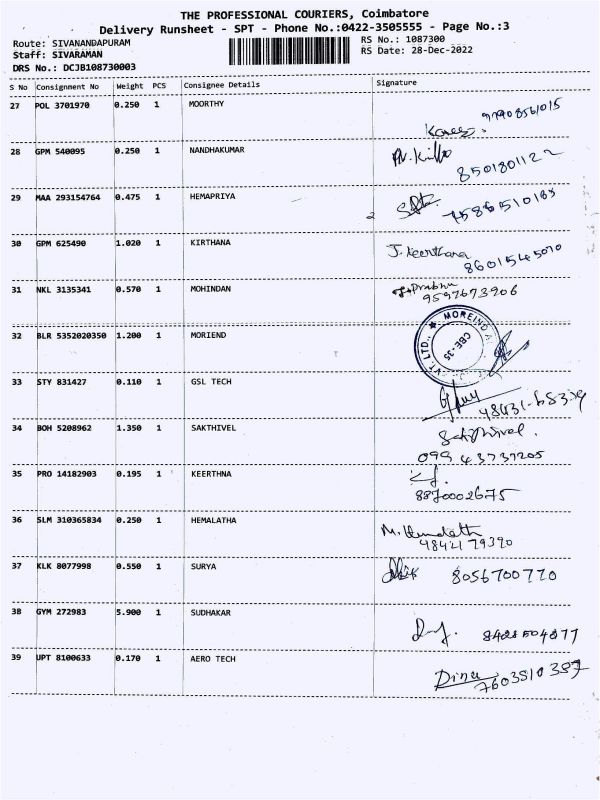 THE PROFESSIONAL COURIERS, Coimbatore
Delivery Runsheet - SPT - Phone No.:0422-3505555 - Page No.:3
Route: SIVANANDAPURAM RS No.: 1087300
Staff: SIVARAMAN RS Date: 28-Dec-2022
DRS No.: DCJB108730003
S No Consignment No Weight PCS Consignee Details Signature
27 POL 3701970 0.250 1 MOORTHY
28 GPM 540095 0.250 1 NANDHAKUMAR
8501801122
29 MAA 293154764 0.475 1 HEMAPRIYA
30 GPM 625490 1.020 1 KIRTHANA J. Keerthana
8601545070
31 NKL 3135341 0.570 1 MOHINDAN Prabhu
9597673906
32 BLR 5352020350 1.200 1 MORIEND
MOREIND
CBE-35
VT. LTD.,
33 STY 831427 0.110 1 GSL TECH
34 BOH 5208962 1.350 1 SAKTHIVEL Sakthivel.
099 43737205
35 PRO 14182903 0.195 1 KEERTHNA
8870002675
36 SLM 310365834 0.250 1 HEMALATHA
48421 79390
37 KLK 8077998 0.550 1 SURYA 8056700770
38 GYM 272983 5.900 1 SUDHAKAR
8428504877
39 UPT 8100633 0.170 1 AERO TECH Dinu
7603510357